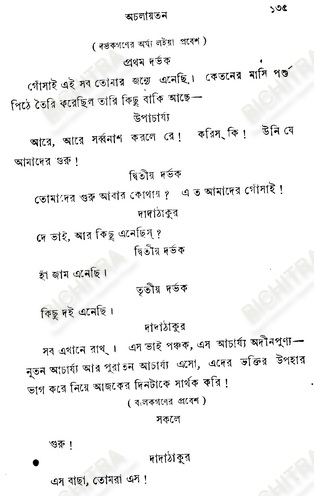 অচলায়তন
১৩৫
( দর্ভকগণের অর্ঘ্য লইয়া প্রবেশ )
প্রথম দর্ভক
গোঁসাই এই সব তোমার জন্যে এনেছি। কেতনের মাসি পর্শু
পিঠে তৈরি করেছিল তারি কিছু বাকি আছে—
উপাচার্য্য
আরে, আরে সর্ব্বনাশ করলে রে! করিস্ কি! উনি যে
আমাদের গুরু!
দ্বিতীয় দর্ভক
তোমাদের গুরু আবার কোথায়? এ ত আমাদের গোঁসাই!
দাদাঠাকুর
দে ভাই, আর কিছু এনেছিস্?
দ্বিতীয় দর্ভক
হাঁ জাম এনেছি।
তৃতীয় দর্ভক
কিছু দই এনেছি।
দাদাঠাকুর
সব এখানে রাখ্। এস ভাই পঞ্চক, এস আচার্য্য অদীনপুণ্য—
নূতন আচার্য্য আর পুরাতন আচার্য্য এসো, এদের ভক্তির উপহার
ভাগ করে নিয়ে আজকের দিনটাকে সার্থক করি!
( বালকগণের প্রবেশ )
সকলে
গুরু!
দাদাঠাকুর
এস বাছা, তোমরা এস!
BICHITRA
BICHITRA
BICHITRA
BICHITRA